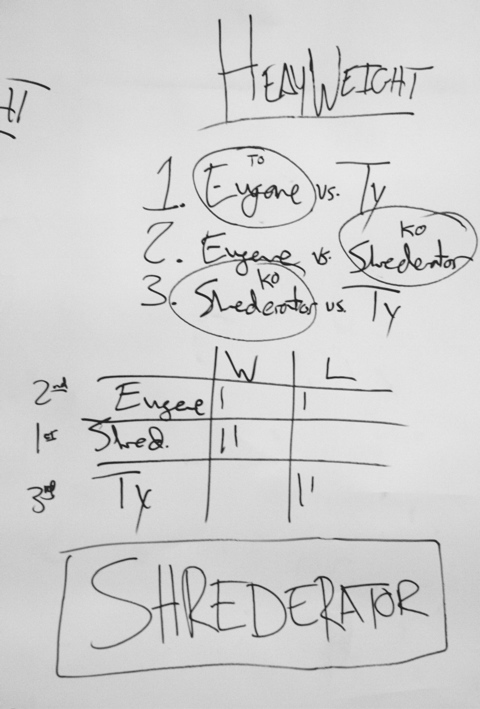 HT
HEAVYWEIGHT
TO
1. Eugene vs. Ty
KO
2. Eugene vs. Shrederator
KO
3. Shrederator vs. Ty
W L
2nd Eugene I I
1st Shred. II
3rd Ty II
SHREDERATOR